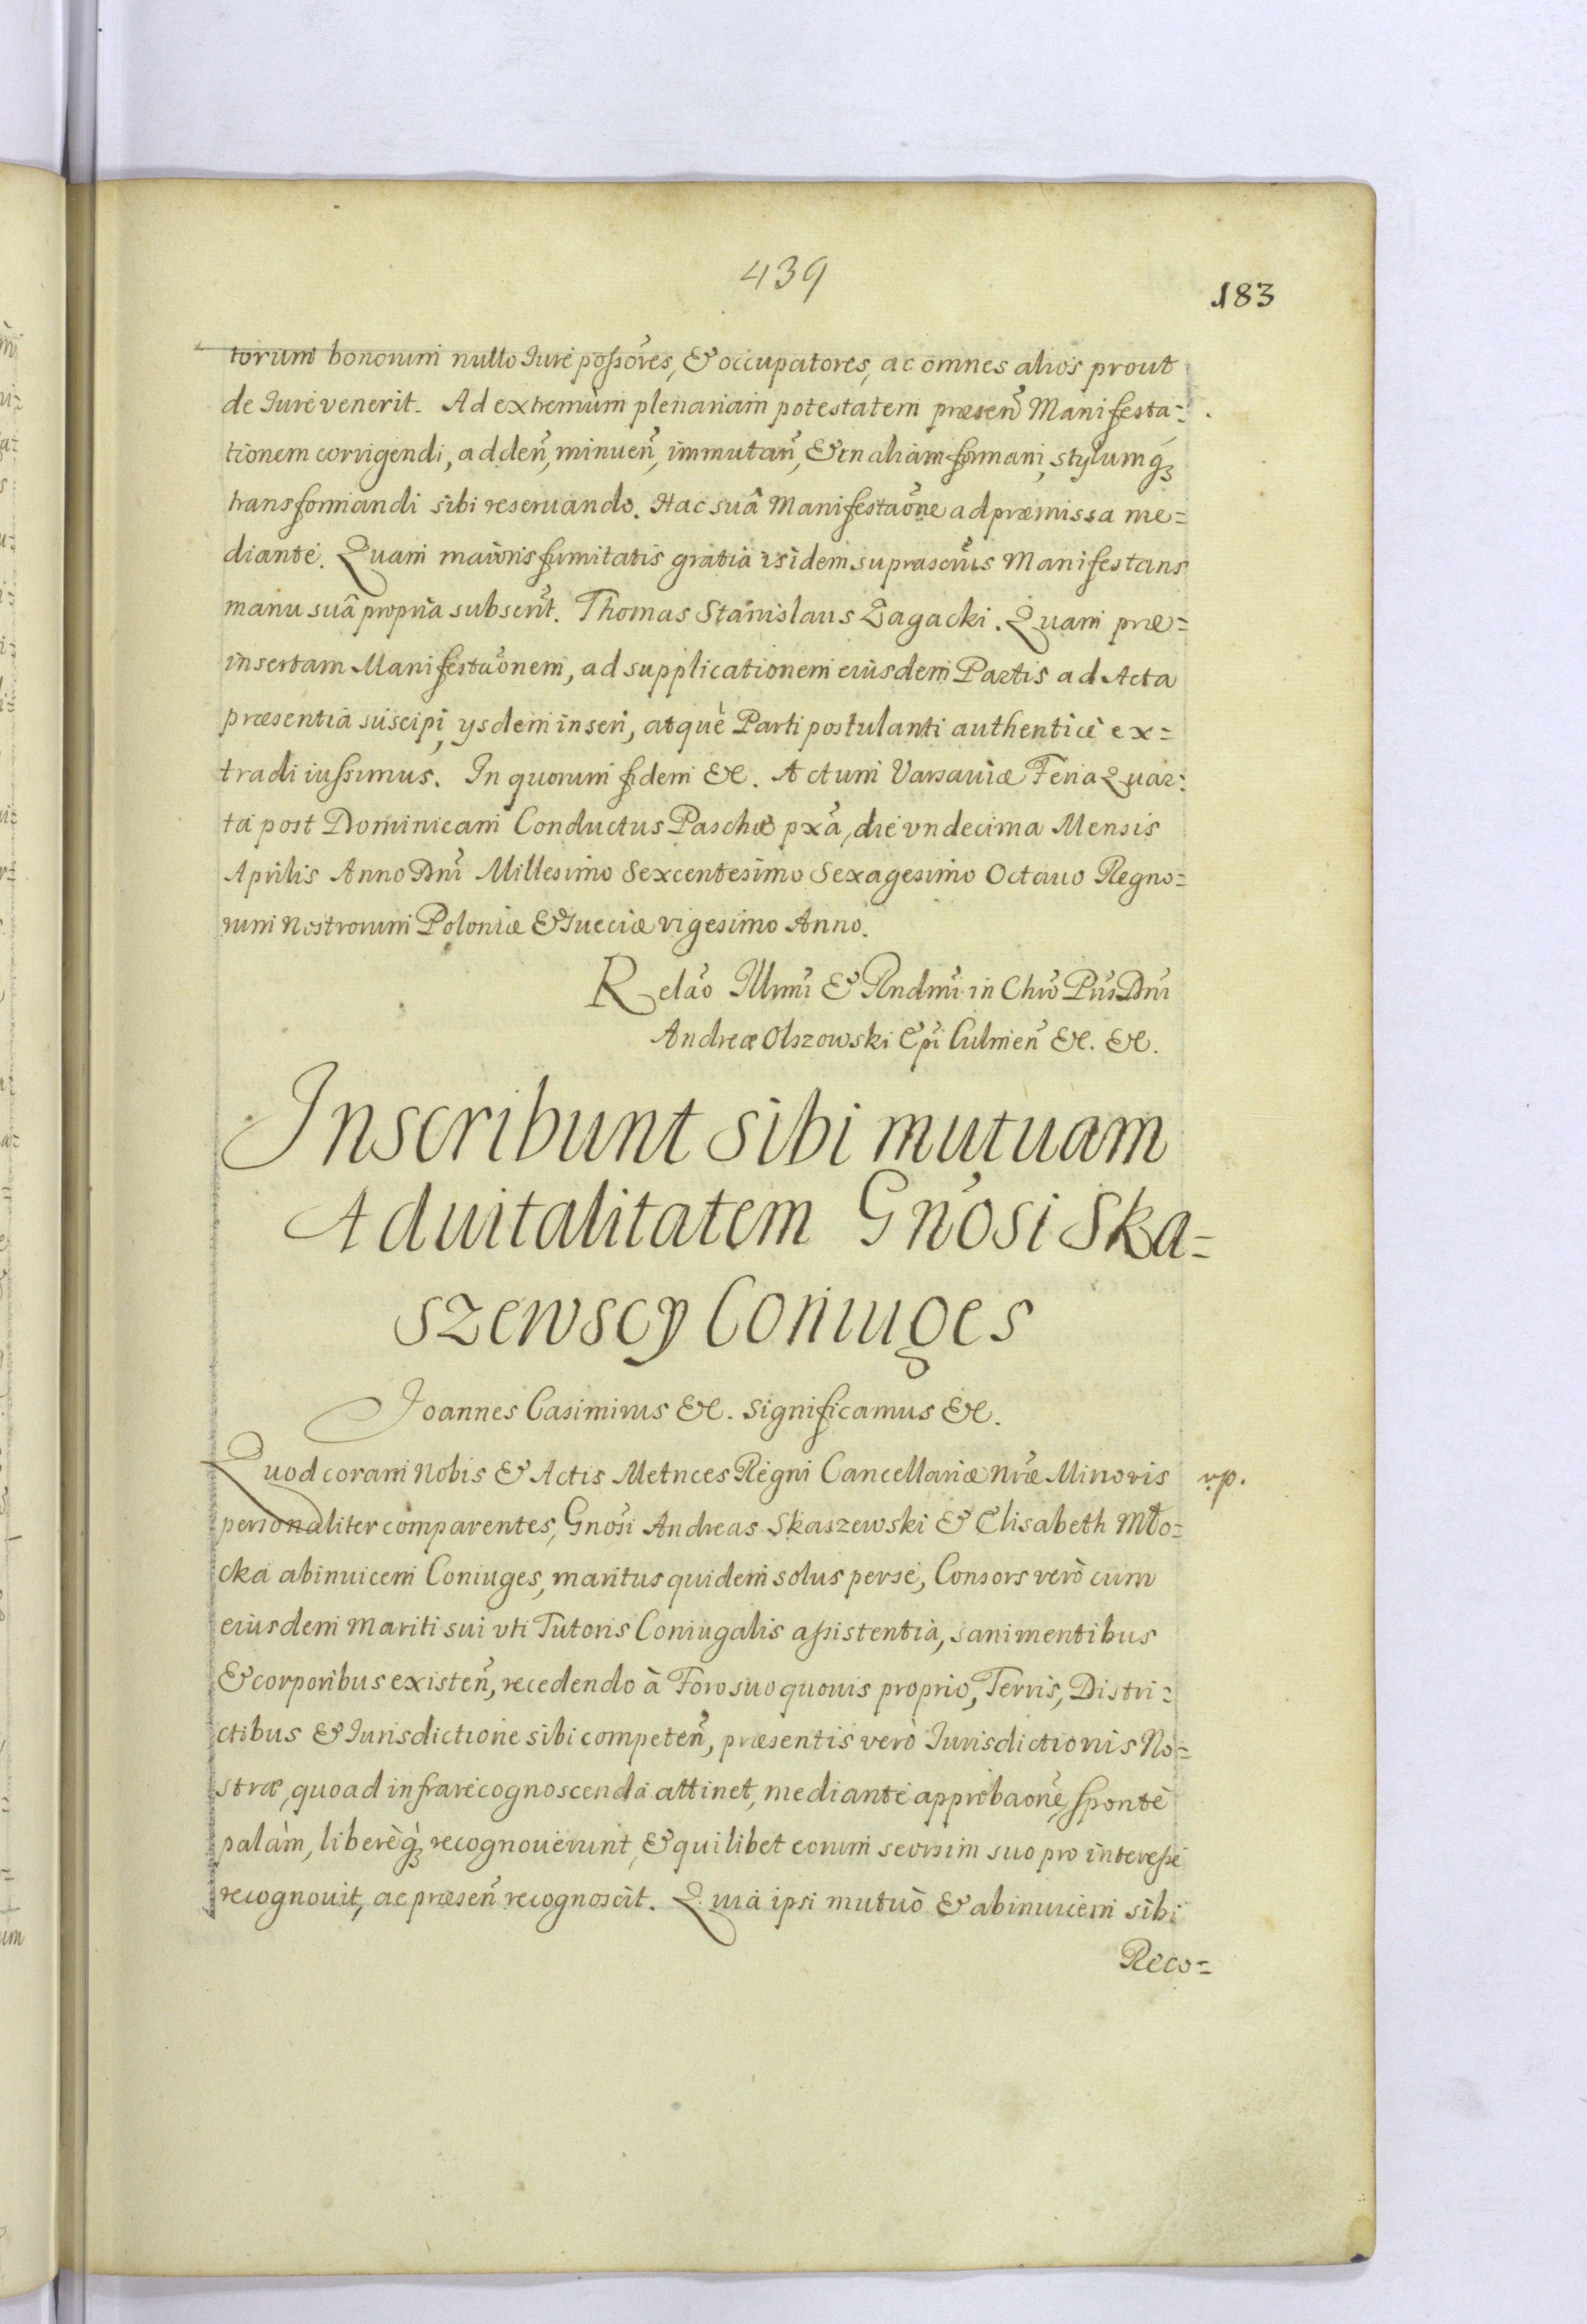 439
183
torum bonorum nullo Iure poſsores, & occupatores, ac omnes alios prout
de Iure venerit. Ad extremum plenariam potestatem præsen̄ Manifesta=
tionem corrigendi, adden̄, minuen̄, immutan̄, & in aliam formam, stylumq́
transformandi sibi reseruando. Hac suâ Manifestaōne ad præmissa me=
diante. Quam maioris firmitatis gratia isidem suprascrīus Manifestans
manu suâ propria subscrīt. Thomas Stanislaus Zagacki. Quam præ=
insertam Manifestaōnem, ad supplicationem eiusdem Partis ad Acta
præsentia suscipi, ysdem inseri, atquè Parti postulanti authenticè ex=
tradi iuſsimus. In quorum fidem &c. Actum Varsauiæ Feria Quar=
ta post Dominicam Conductus Paschæ pxā, die vndecima Mensis
Aprilis Anno Dn̄i Millesimo Sexcentesimo Sexagesimo Octauo Regno=
rum Nostrorum Poloniæ & Sueciæ vigesimo Anno.
Relaō Illmī & Rndmī in Chrō Pr̄is Dn̄i
Andreæ Olszowski Ep̄i Culmen̄ &c. &c.
Inscribunt sibi mutuam
Aduitalitatem Gn̄osi Ska=
szewscy Coniuges
Joannes Casimirus &c. Significamus &c.
Quod coram Nobis & Actis Metrices Regni Cancellariæ Nr̄æ Minoris
rp.
personaliter comparentes, Gnōsi Andreas Skaszewski & Elisabeth Mło=
cka abinuicem Coniuges, maritus quidem solus per se, Consors verò cum
eiusdem Mariti sui vti Tutoris Coniugalis aſsistentia, sani mentibus
& corporibus existen̄, recedendo à Foro suo quouis proprio, Terris, Distri=
ctibus & Iurisdictione sibi competen̄, præsentis verò Iurisdictionis No=
stræ, quoad infra recognoscenda attinet, mediante approbaōne, spontè
palàm, liberèq́ recognouerunt, & quilibet eorum seorsim suo pro intereſse
recognouit, ac præsen̄ recognoscit. Quia ipsi mutuò & abinuicem sibi
Reco=